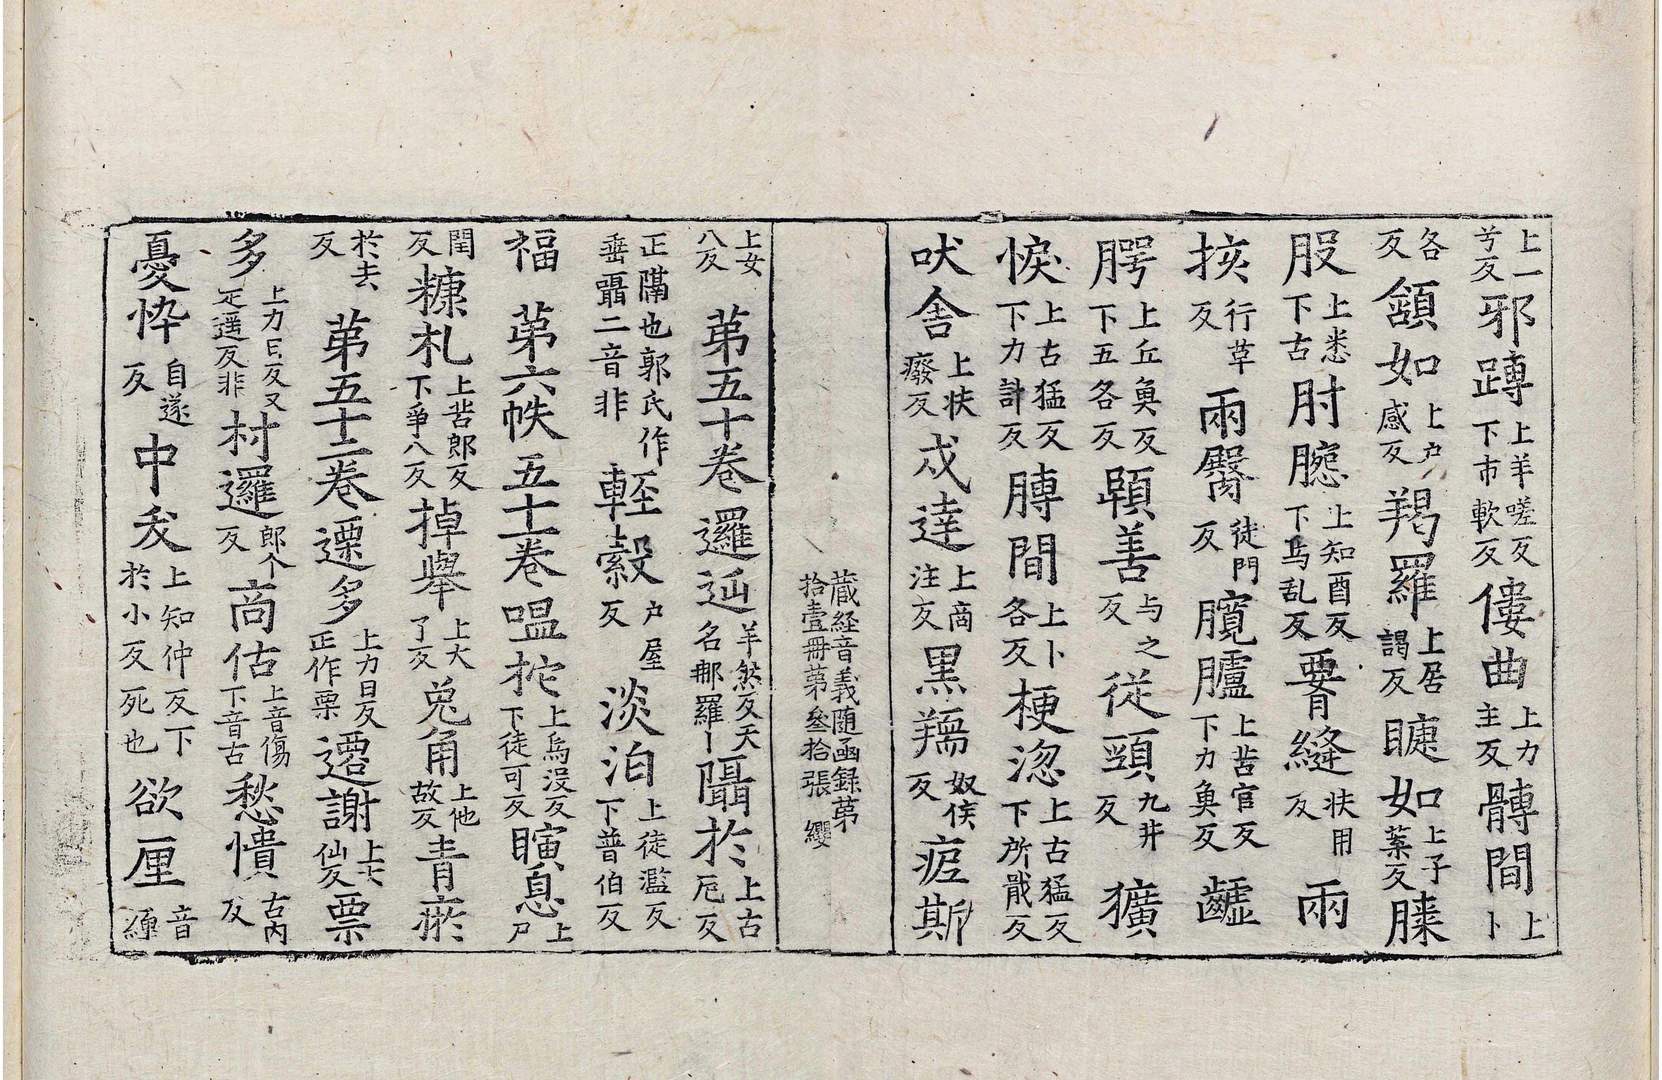 上一兮反邪蹲上羊嗟反下市軟反僂曲上力主反髆間上卜
各反頷如上户感反羯羅上居謁反睫如上子葉反膝
股上悉下古肘腕上知酉反下烏乱反𦝫縫扶用反兩
㧡行草反兩臀徒門反髖臚上苦官反下力魚反齇
腭上丘魚反下五各反顊善与之反從頸九井反獷
悷上古猛反下力計反膊間上卜各反梗澀上古猛反下所戢反
吠舍上扶癈反戍達上商注反黑羺奴侯反㾏斯
藏経音義随函録第拾壹冊第叄拾張 纓
上女八反 第五十卷邏迆羊然反天名那羅丨囁於上古厄反
正隔也郭氏作垂聶二音非 輊縠户屋反 淡泊上徒濫反下普伯反
福 第六帙 五十一卷 嗢柁上烏没反下徒可反瞚息上尸
閏反糠札上苦郎反下爭八反掉舉上大了反兎角上他故反青瘀
於去反 第五十二卷遷多上力日反正作栗遷謝上七仙反票
多上力日反又疋遥反非村邏郎个反商估上音傷下音古愁憒古內反
憂忰自遂反中夭上知仲反下於小反死也欲厘音